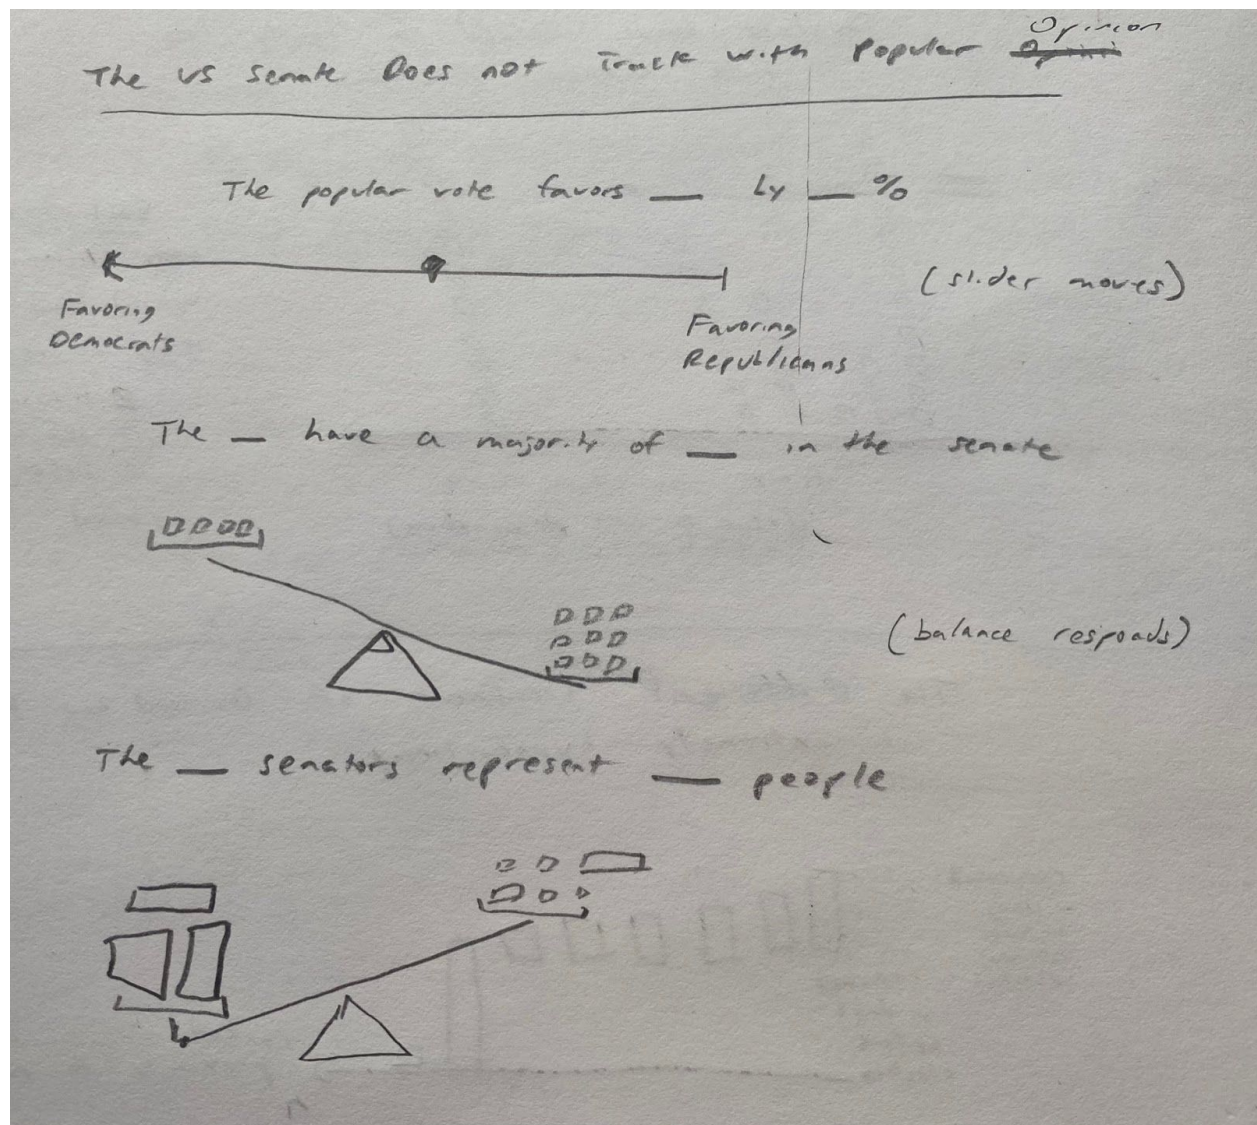 Opinion
The US Senate Does not Track with Popular
The popular vote favors __ by __ %
(slider moves)
Favoring
Democrats
Favoring
Republicans
The __ have a majority of __ in the senate
(balance responds)
The __ senators represent __ people